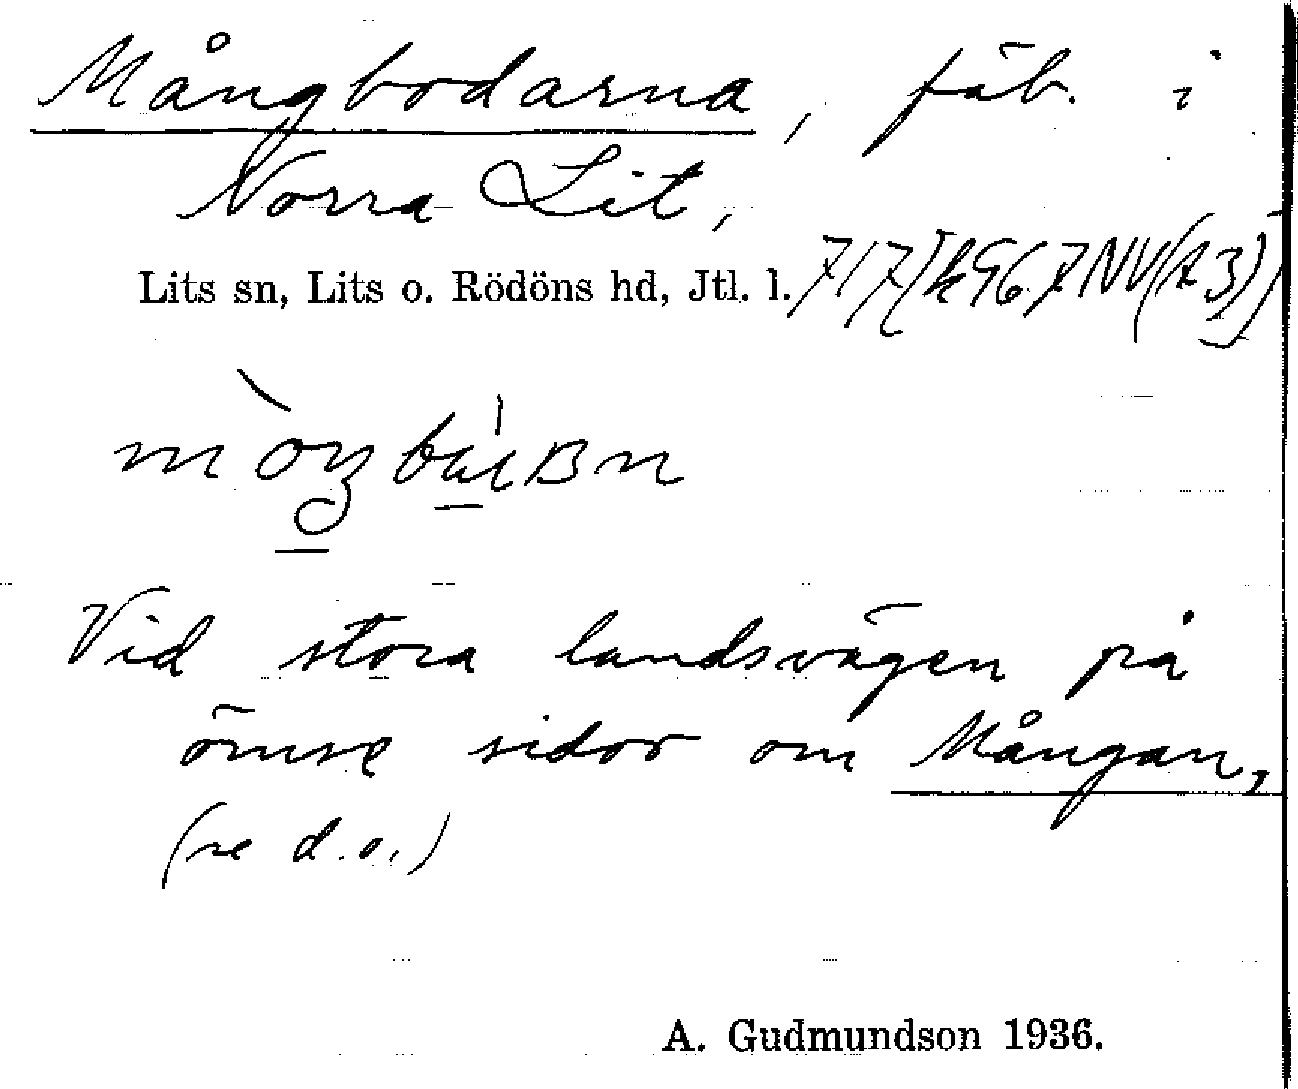 Mångbodarna, fäb. i
Norra Lit,
Lits sn, Lits o. Rödöns hd, Jtl. l.
Vid stora landsvägen på
ömse sidor om Mångan,
(se d.o.)
A. Gudmundson 1936.